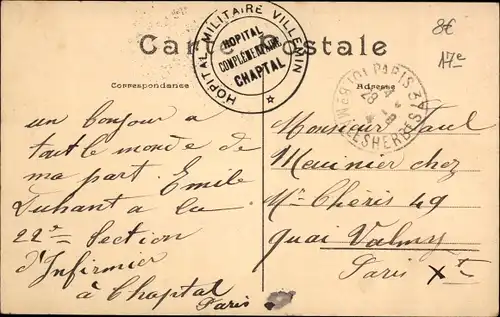 8€
17e
HOPITAL MILITAIRE VILLEMIN
HOPITAL
COMPLÉMENTAIRE
CHAPTAL
Carte Postale
Correspondance
Adresse
PARIS 3 MALESHERBES
28
un bonjour a
tout le monde de
ma part. Emile
Duhant a la
22e Section
d'Infirmier
à Chaptal
Paris
Monsieur Paul
Meunier chez
Mr Chéris 49
quai Valmy
Paris Xe